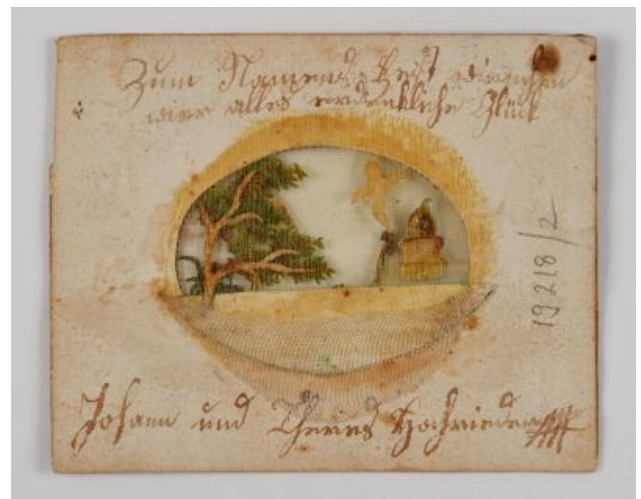 Zum Namens Fest wünschen
wier alles erdenkliche Glück
19218/2
Johann und Theres Hochrieder